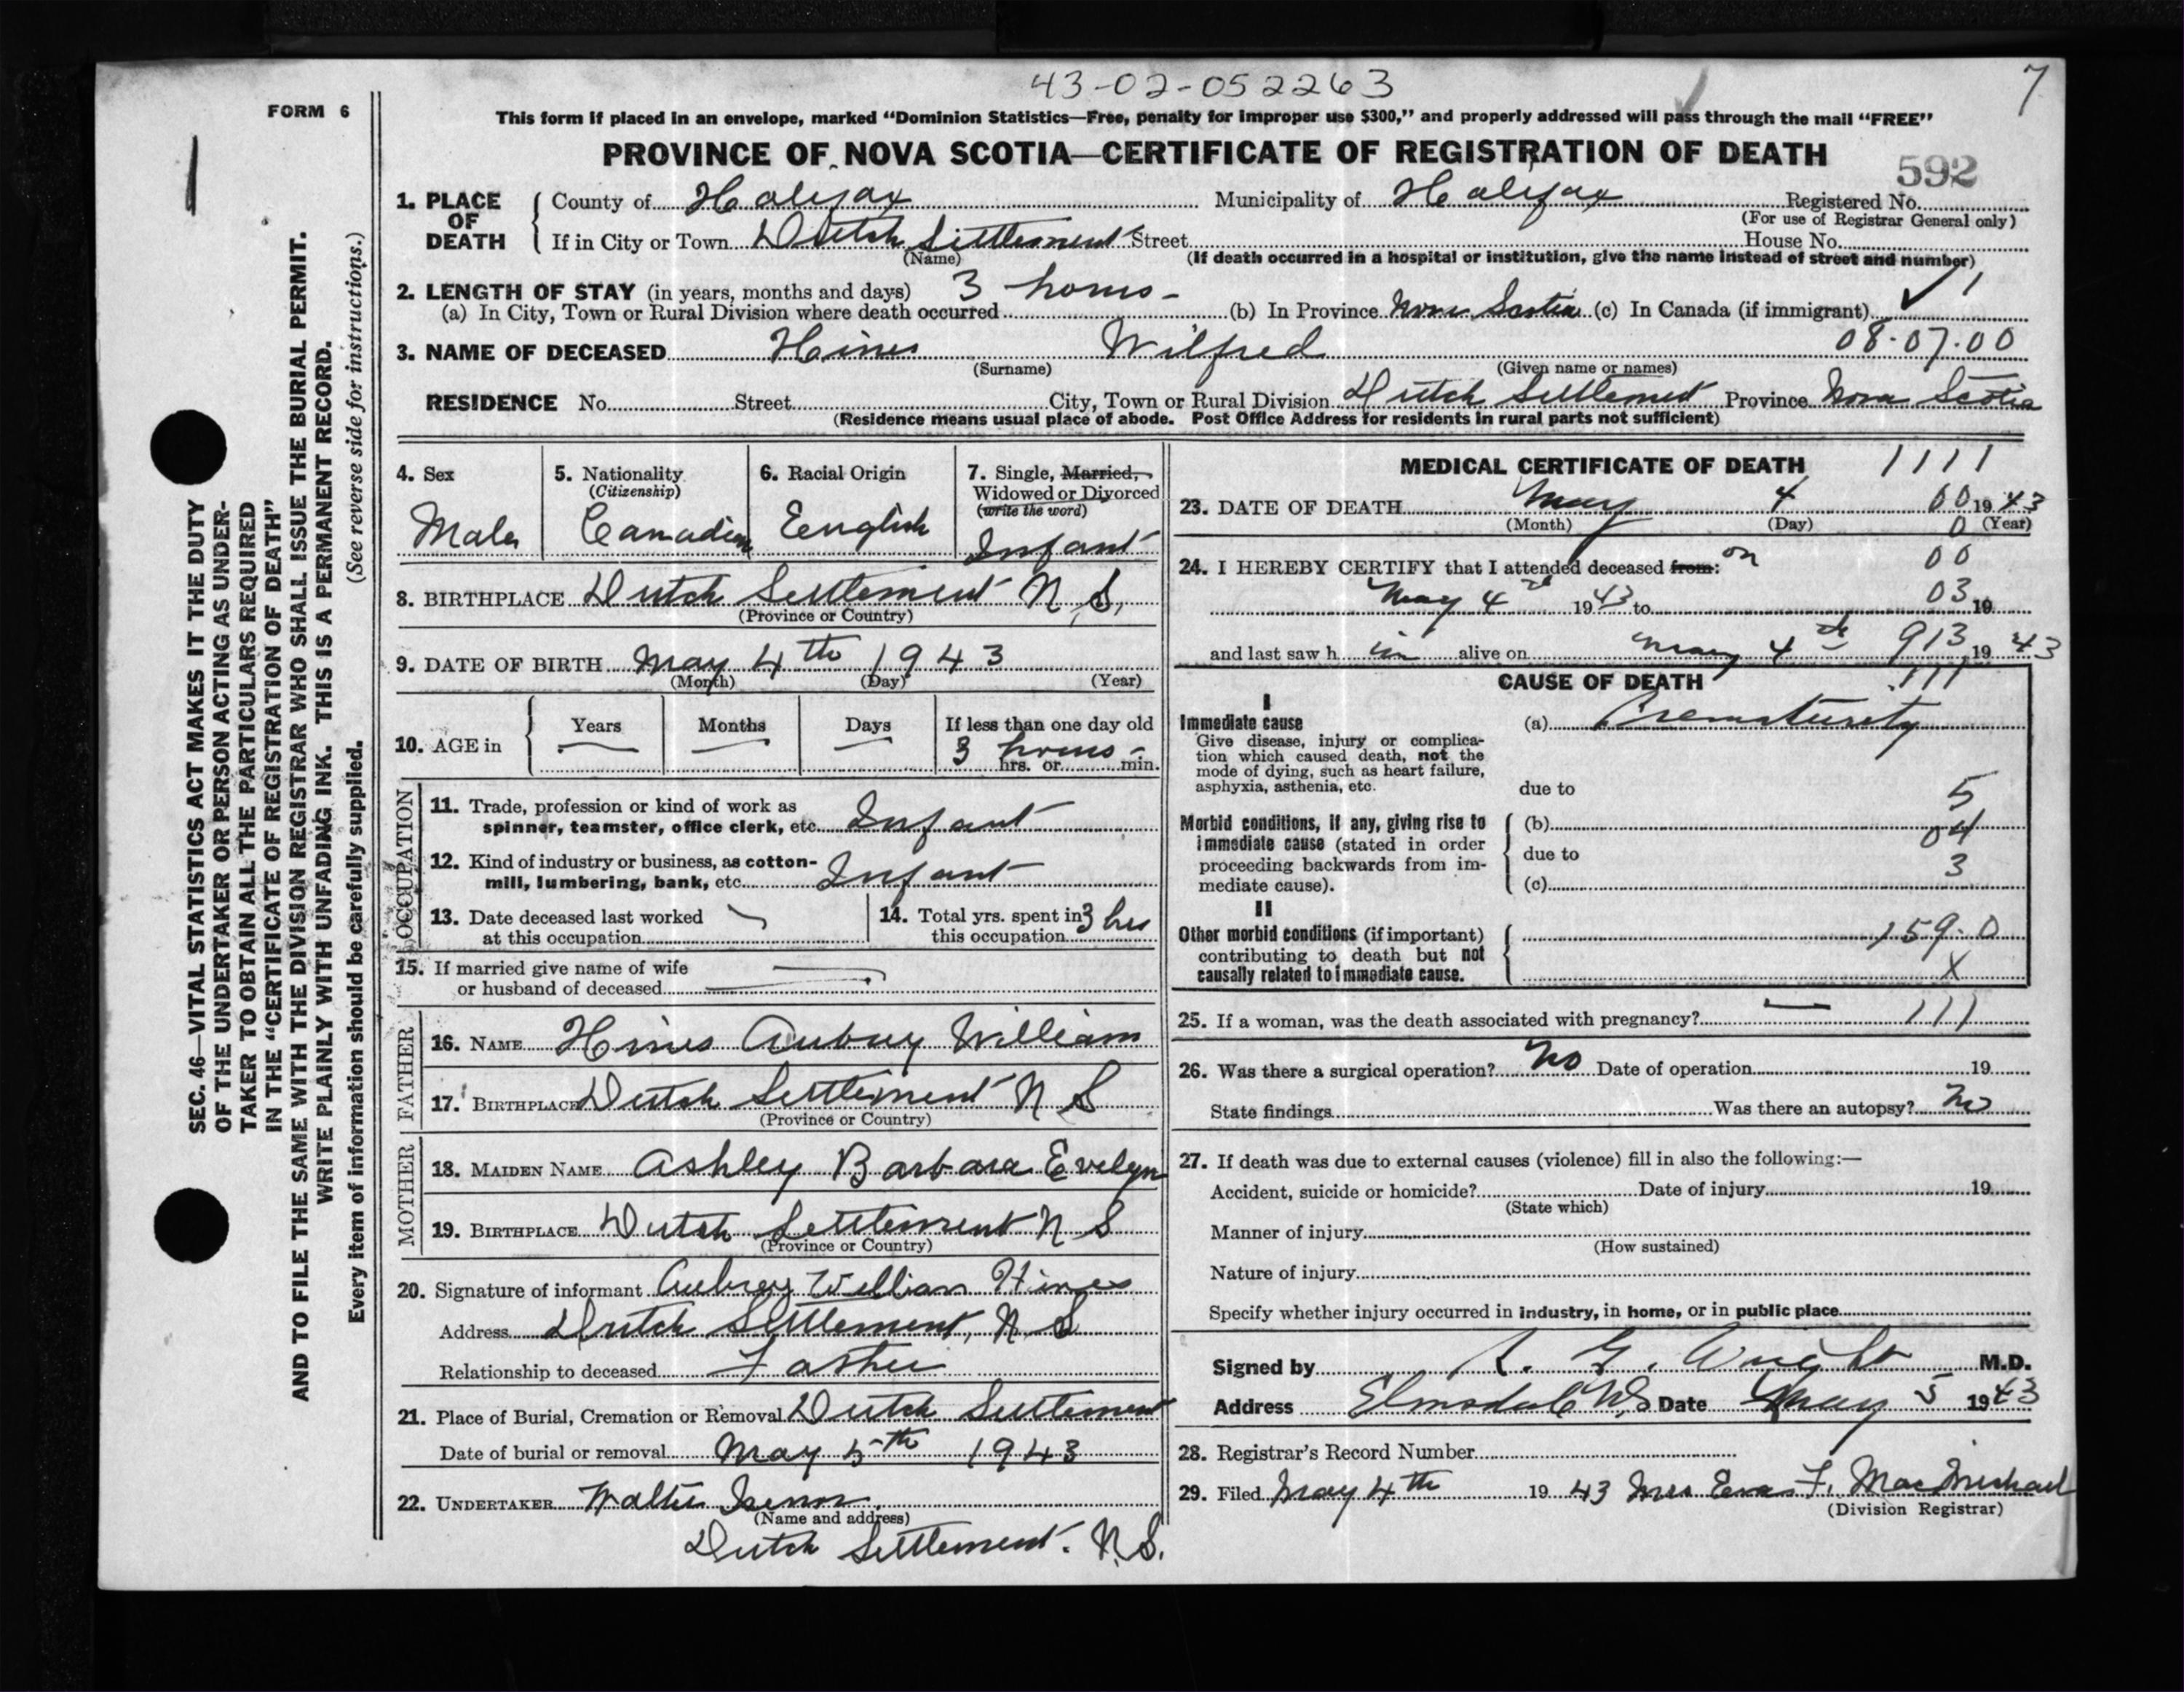 43-02-052263
7
FORM 6
This form if placed in an envelope, marked "Dominion Statistics—Free, penalty for improper use $300," and properly addressed will pass through the mail "FREE"
PROVINCE OF NOVA SCOTIA—CERTIFICATE OF REGISTRATION OF DEATH
592
1. PLACE OF DEATH { County of Halifax Municipality of Halifax Registered No.
(For use of Registrar General only)
If in City or Town Dutch Settlement Street House No.
(Name) (If death occurred in a hospital or institution, give the name instead of street and number)
2. LENGTH OF STAY (in years, months and days) 3 hours -
(a) In City, Town or Rural Division where death occurred (b) In Province Nova Scotia (c) In Canada (if immigrant) ✓ 1
08.07.00
3. NAME OF DECEASED Hines Wilfred
(Surname) (Given name or names)
RESIDENCE No. Street City, Town or Rural Division Dutch Settlement Province Nova Scotia
(Residence means usual place of abode. Post Office Address for residents in rural parts not sufficient)
4. Sex
Male
5. Nationality
(Citizenship)
Canadian
6. Racial Origin
English
7. Single, Married,
Widowed or Divorced
(write the word)
Infant
8. BIRTHPLACE Dutch Settlement N.S.
(Province or Country)
9. DATE OF BIRTH May 4th 1943
(Month) (Day) (Year)
10. AGE in { Years Months Days If less than one day old
3 hours -
hrs. or min.
OCCUPATION
11. Trade, profession or kind of work as
spinner, teamster, office clerk, etc. Infant
12. Kind of industry or business, as cotton-
mill, lumbering, bank, etc. Infant
13. Date deceased last worked
at this occupation
14. Total yrs. spent in 3 hrs
this occupation
15. If married give name of wife
or husband of deceased
FATHER
16. NAME Hines Aubrey William
17. BIRTHPLACE Dutch Settlement N S
(Province or Country)
MOTHER
18. MAIDEN NAME Ashley Barbara Evelyn
19. BIRTHPLACE Dutch Settlement N S
(Province or Country)
20. Signature of informant Aubrey William Hines
Address Dutch Settlement, N. S
Relationship to deceased Father
21. Place of Burial, Cremation or Removal Dutch Settlement
Date of burial or removal May 5th 1943
22. UNDERTAKER Walter
(Name and address)
Dutch Settlement. N.S.
MEDICAL CERTIFICATE OF DEATH 1111
23. DATE OF DEATH May 4 00 1943
(Month) (Day) 0 (Year)
24. I HEREBY CERTIFY that I attended deceased from: on 00
May 4th 1943 to 03 19
and last saw h im alive on May 4th 913 19 43
CAUSE OF DEATH 111
I
Immediate cause (a) Prematurity
Give disease, injury or complica-
tion which caused death, not the
mode of dying, such as heart failure,
asphyxia, asthenia, etc.
due to 5
Morbid conditions, if any, giving rise to (b) 04
immediate cause (stated in order due to 3
proceeding backwards from im-
mediate cause). (c)
II
Other morbid conditions (if important) 159.0
contributing to death but not
causally related to immediate cause. X
25. If a woman, was the death associated with pregnancy? — 111
26. Was there a surgical operation? No Date of operation 19
State findings Was there an autopsy? No
27. If death was due to external causes (violence) fill in also the following:—
Accident, suicide or homicide? Date of injury 19
(State which)
Manner of injury
(How sustained)
Nature of injury
Specify whether injury occurred in industry, in home, or in public place
Signed by G. Wright M.D.
Address Elmsdale N.S Date May 5 1943
28. Registrar's Record Number
29. Filed May 4th 19 43 Mrs Eva F. MacMichael
(Division Registrar)
SEC. 46—VITAL STATISTICS ACT MAKES IT THE DUTY
OF THE UNDERTAKER OR PERSON ACTING AS UNDER-
TAKER TO OBTAIN ALL THE PARTICULARS REQUIRED
IN THE "CERTIFICATE OF REGISTRATION OF DEATH"
AND TO FILE THE SAME WITH THE DIVISION REGISTRAR WHO SHALL ISSUE THE BURIAL PERMIT.
WRITE PLAINLY WITH UNFADING INK. THIS IS A PERMANENT RECORD.
Every item of information should be carefully supplied. (See reverse side for instructions.)
1